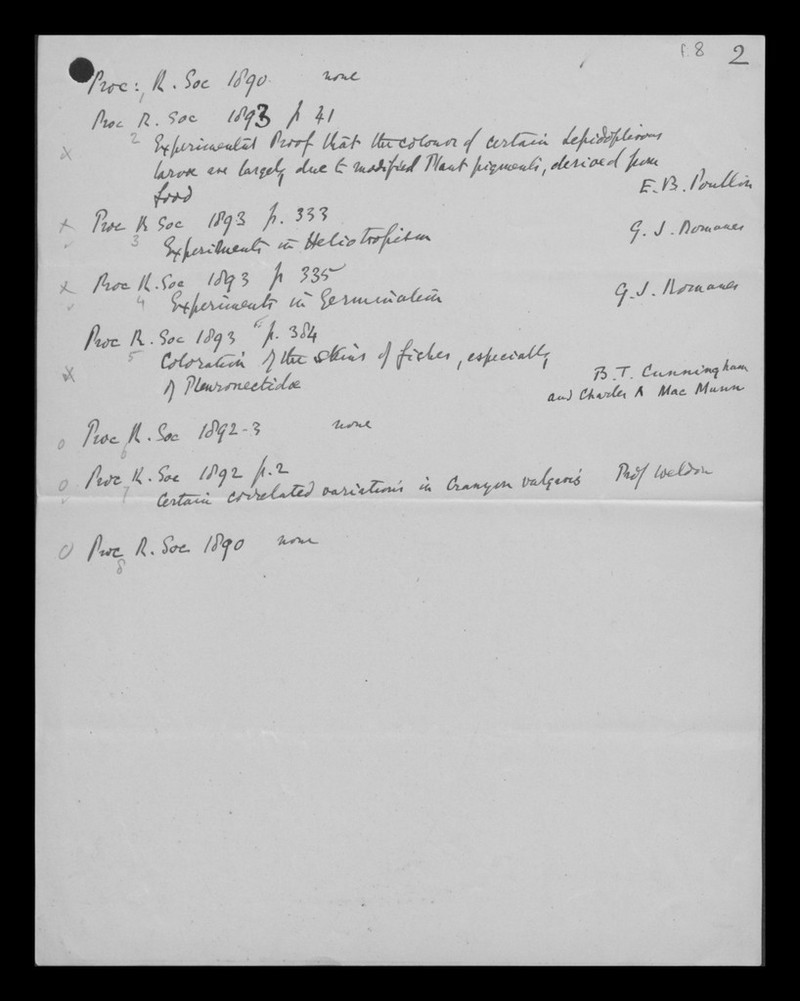 f. 8 2
Proc: R. Soc 1890. none
1
Proc R. Soc 1893 p 41
2 Experimental Proof that the colours of certain Lepidopterous
x larvae are largely due to modified Plant pigments, derived from
food E. B. Poulton
x Proc R Soc 1893 p. 333 G. J. Romanes
3 Experiments in Heliotropism
x Proc R. Soc 1893 p 335 G. J. Romanes
4 Experiments in Germination
Proc R. Soc 1893 p. 384
5 Coloration of the skins of fishes, especially
x of Pleuronectidae B. T. Cunningham
and Charles A Mac Munn
o Proc R. Soc 1892-3 none
6
o Proc R. Soc 1892 p. 2 Prof Weldon
7 Certain correlated variations in Crangon vulgaris
o Proc R. Soc 1890 none
8